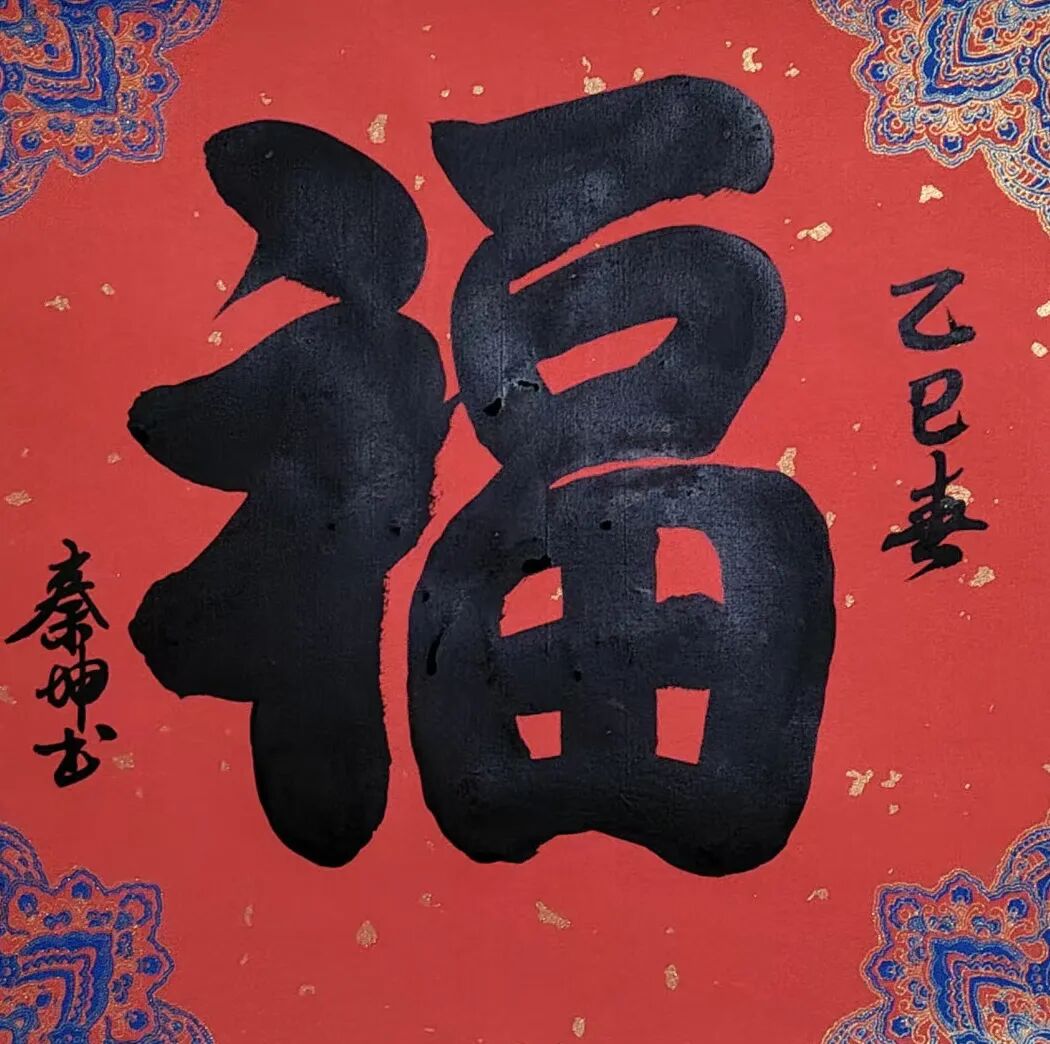 乙巳春
福
秦坤书